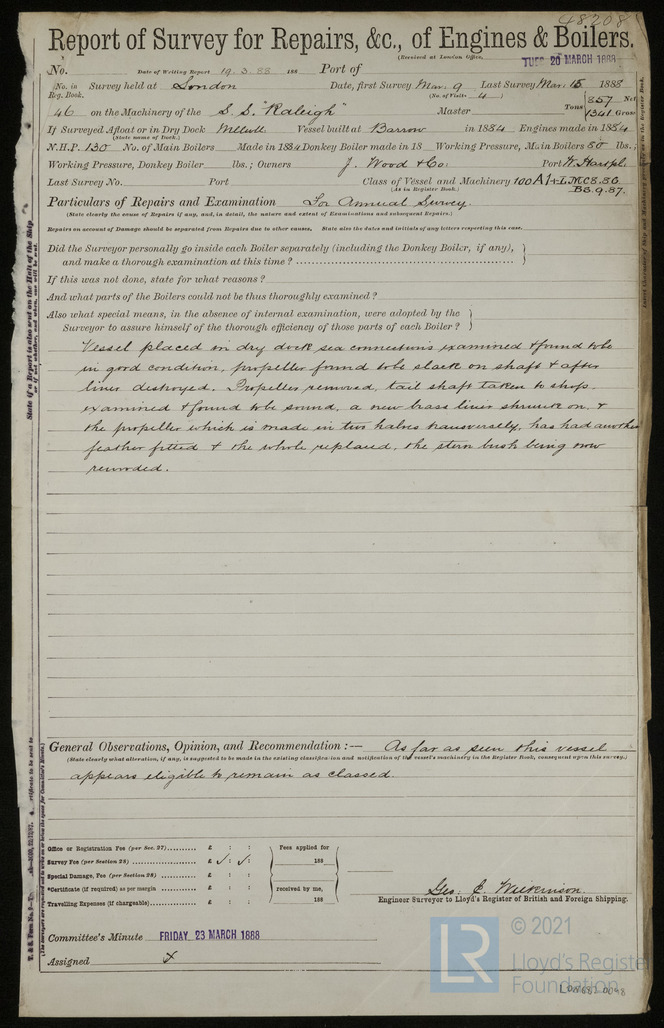 48208
Report of Survey for Repairs, &c., of Engines & Boilers.
(Received at London Office,
TUES 20 MARCH 1888
No. Date of Writing Report 19.3.88 188 Port of
No. in Reg. Book. Survey held at London Date, first Survey Mar. 9 Last Survey Mar. 15 1888
(No. of Visits 4)
46 on the Machinery of the S.S. "Raleigh" Master Tons 857 Net
1341 Gross
If Surveyed Afloat or in Dry Dock Millwall Vessel built at Barrow in 1884 Engines made in 1884
(State name of Dock.)
N.H.P. 130 No. of Main Boilers Made in 1884 Donkey Boiler made in 18 Working Pressure, Main Boilers 80 lbs.;
Working Pressure, Donkey Boiler lbs.; Owners J. Wood & Co: Port W. Hartpl
Last Survey No. Port Class of Vessel and Machinery 100A1 LMC 8.86
(As in Register Book.) BS.9.87.
Particulars of Repairs and Examination For Annual Survey.
(State clearly the cause of Repairs if any, and, in detail, the nature and extent of Examinations and subsequent Repairs.)
Repairs on account of Damage should be separated from Repairs due to other causes. State also the dates and initials of any letters respecting this case.
Did the Surveyor personally go inside each Boiler separately (including the Donkey Boiler, if any),
and make a thorough examination at this time?
If this was not done, state for what reasons?
And what parts of the Boilers could not be thus thoroughly examined?
Also what special means, in the absence of internal examination, were adopted by the
Surveyor to assure himself of the thorough efficiency of those parts of each Boiler?
Vessel placed in dry dock sea connections examined & found to be
in good condition, propeller found to be slack on shaft & after
liner destroyed. Propeller removed, tail shaft taken to shop,
examined & found to be sound, a new brass liner shrunk on, &
the propeller which is made in two halves transversely, has had another
feather fitted & the whole replaced, the stern bush being now
rewooded.
General Observations, Opinion, and Recommendation:— As far as seen this vessel
(State clearly what alteration, if any, is suggested to be made in the existing classification and notification of the vessel's machinery in the Register Book, consequent upon this survey.)
appears eligible to remain as classed.
Office or Registration Fee (per Sec. 27) £ : : Fees applied for
Survey Fee (per Section 28) £ ✓ : ✓ : 188
Special Damage, Fee (per Section 28) £ : :
*Certificate (if required) as per margin £ : : received by me,
Travelling Expenses (if chargeable) £ : : 188
Geo. C. Wilkinson.
Engineer Surveyor to Lloyd's Register of British and Foreign Shipping.
Committee's Minute FRIDAY 23 MARCH 1888
Assigned
State if a Report is also sent on the Hull of the Ship
LR
© 2021
Lloyd's Register
Foundation